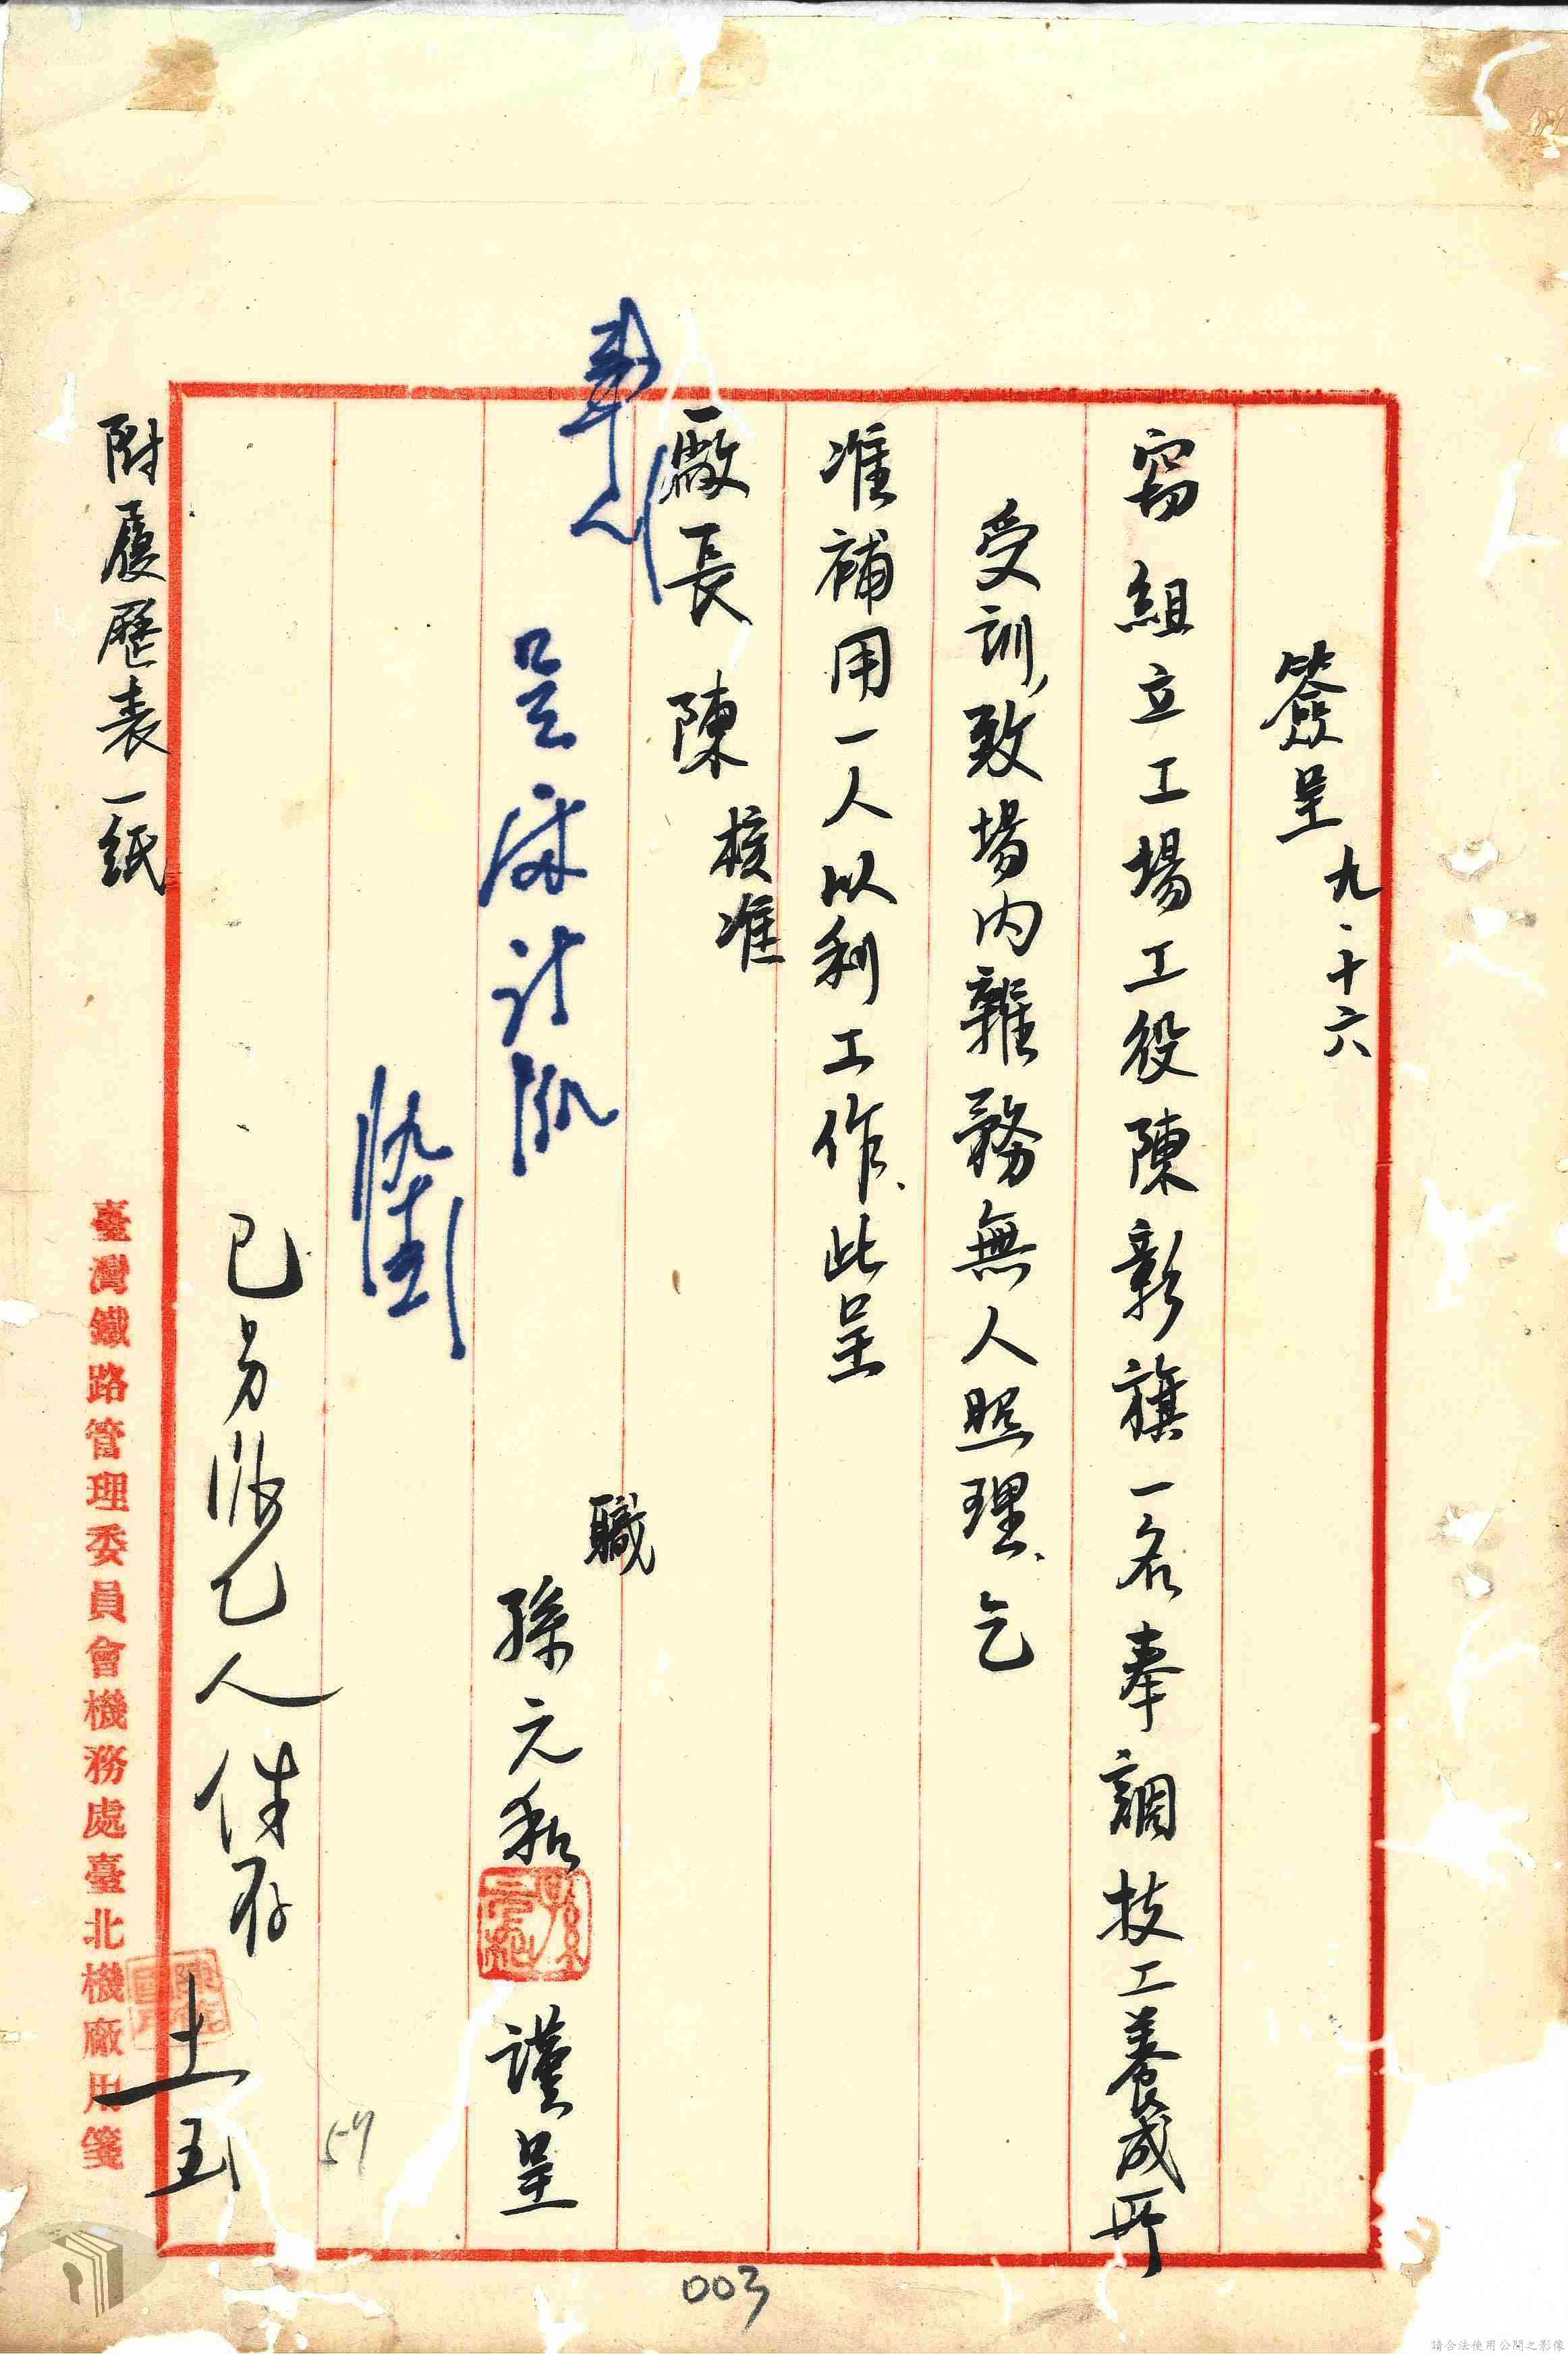 簽呈 九、十六
竊組立工場工役陳彰旗一名奉調技工養成所
受訓，致場內雜務無人照理、乞
准補用一人以利工作、此呈
廠長陳 核准
職
孫元和 謹呈
已另派乙人 件存
附履歷表一紙
臺灣鐵路管理委員會機務處臺北機廠用箋
57
003
請合法使用公開之影像